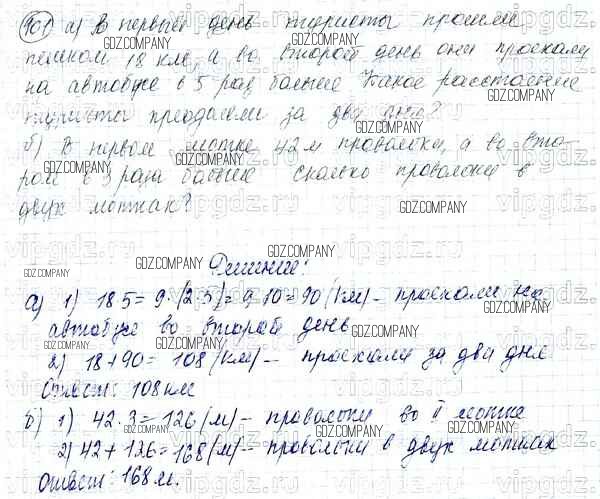 901 а) В первый день туристы прошли
пешком 18 км, а во второй день они проехали
на автобусе в 5 раз больше Какое расстояние
туристы преодолели за два дня?
б) В первом мотке 42 м проволоки, а во вто-
ром в 3 раза больше сколько проволоки в
двух мотках?
Решение:
а) 1) 18·5 = 9·(2·5) = 9·10 = 90 (км) – проехали на
автобусе во второй день
2) 18 + 90 = 108 (км) – проехали за два дня
Ответ: 108 км
б) 1) 42·3 = 126 (м) – проволоки во II мотке
2) 42 + 126 = 168 (м) – проволоки в двух мотках
Ответ: 168 м.
GDZ.COMPANY
vipgdz.ru